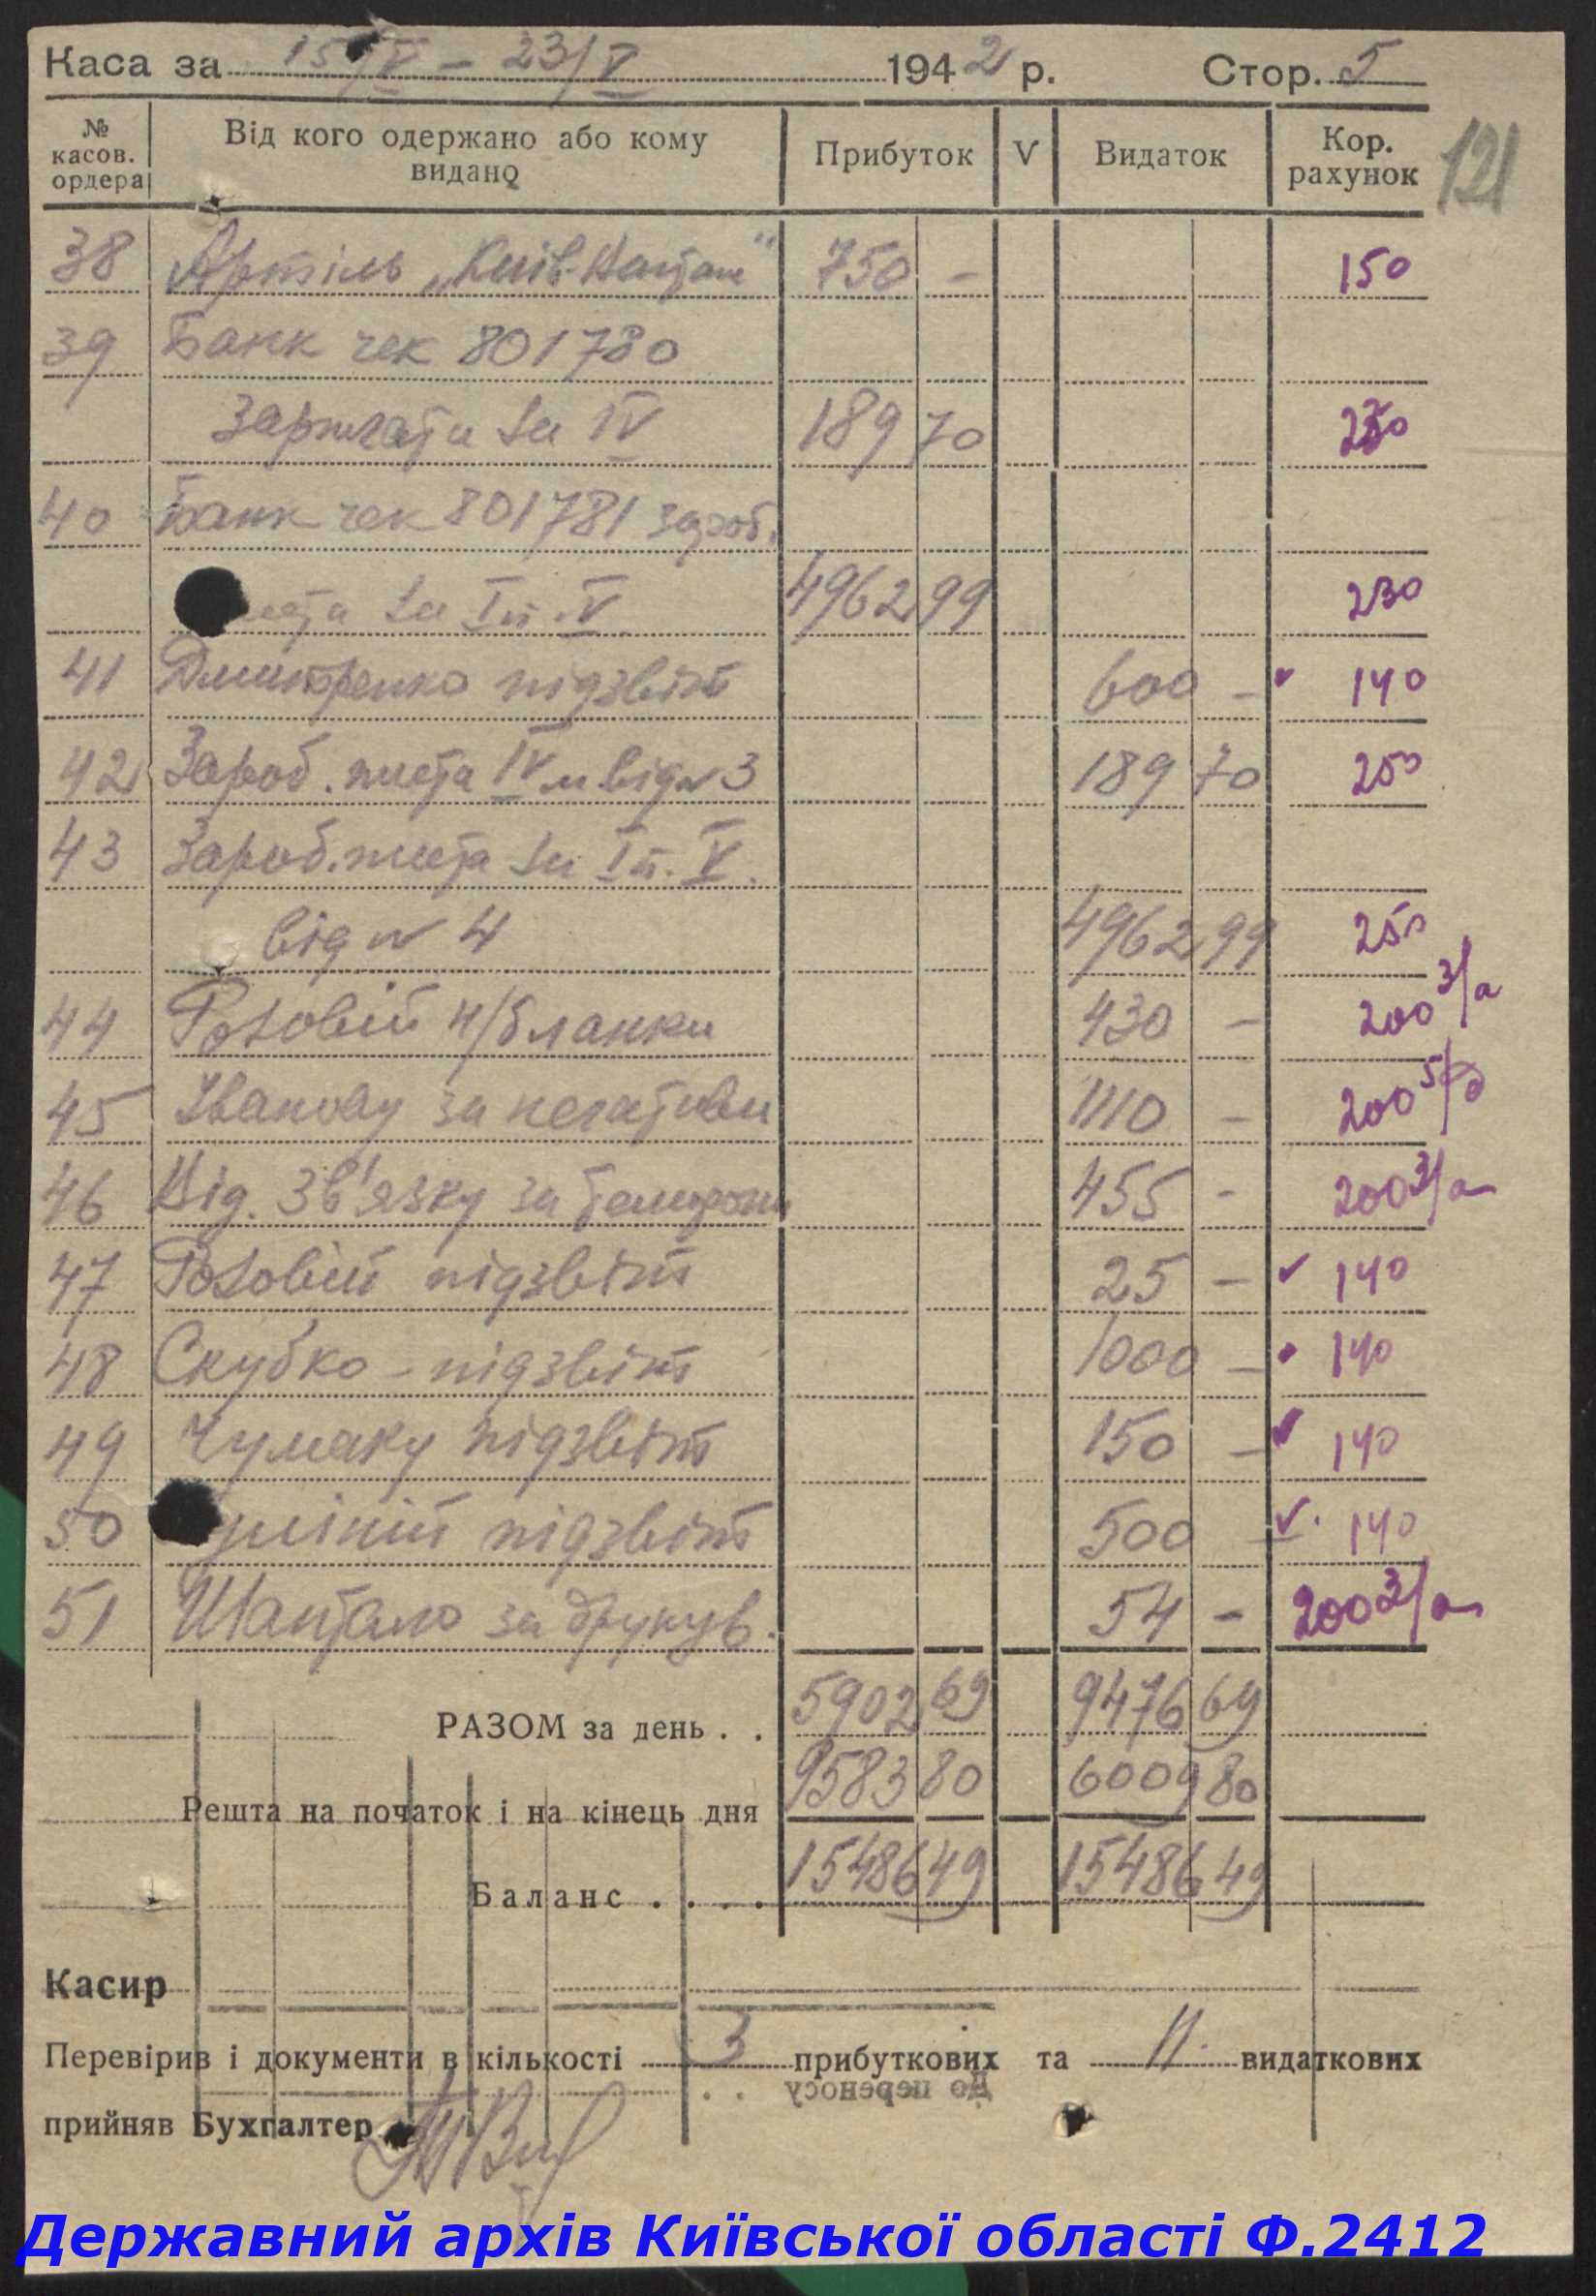 Каса за 15/V – 23/V 1942 р. Стор. 5
121
№ касов. ордера Від кого одержано або кому видано Прибуток V Видаток Кор. рахунок
38 Артіль „Київ 750 – 150
39 Банк чек 801780
Зарплата за IV 189 70 250
40 Банк чек 801781 зароб.
за I п. V 4962 99 230
41 Дмитренко підзвіт 600 – ✓ 140
42 Зароб. плата IV м від № 3 189 70 250
43 Зароб. плата за I п. V.
від № 4 4962 99 250
44 Розовій н/бланки 430 – 200 3/а
45 Іванову за негативи 1110 – 200
46 Від. Зв'язку за телефони 455 – 200 3/а
47 Розовій підзвіт 25 – ✓ 140
48 Скубко – підзвіт 1000 – 140
49 Чумаку підзвіт 150 – ✓ 140
50 підзвіт 500 – ✓ 140
51 Шантало за друкув. 54 – 200 3/а
РАЗОМ за день . . 5902 69 9476 69
Решта на початок і на кінець дня 9583 80 6009 80
Баланс . . . . 15486 49 15486 49
Касир
Перевірив і документи в кількості 3 прибуткових та 11. видаткових
До переносу . .
прийняв Бухгалтер
Державний архів Київської області Ф.2412